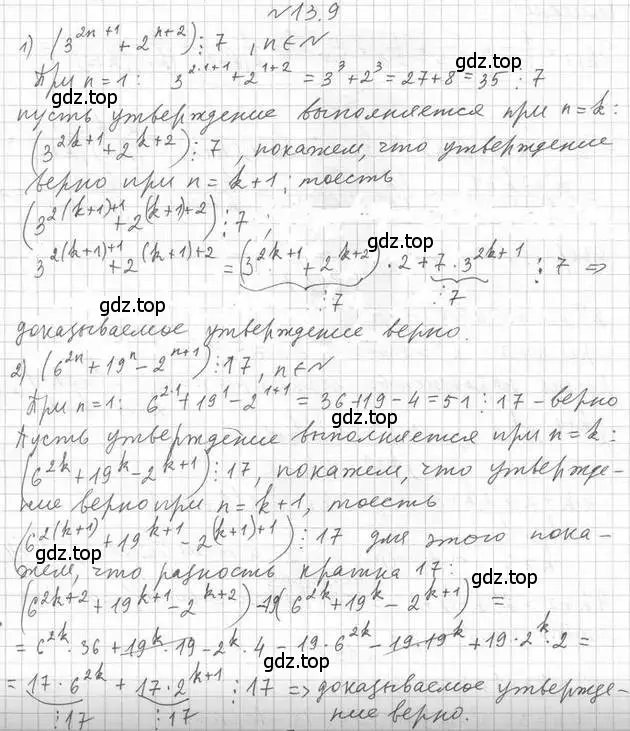 №13.9
1) (3^{2n+1} + 2^{n+2}) ⋮ 7, n∈N
При n=1: 3^{2·1+1} + 2^{1+2} = 3^3 + 2^3 = 27 + 8 = 35 ⋮ 7
gdz.top
gdz.top
пусть утверждение выполняется при n=k:
(3^{2k+1} + 2^{k+2}) ⋮ 7, покажем, что утверждение
верно при n=k+1, тоесть
gdz.top
(3^{2(k+1)+1} + 2^{(k+1)+2}) ⋮ 7;
gdz.top
3^{2(k+1)+1} + 2^{(k+1)+2} = (3^{2k+1} + 2^{k+2}) · 2 + 7 · 3^{2k+1} ⋮ 7 ⇒
⋮7 ⋮7
gdz.top
доказываемое утверждение верно.
gdz.top
2) (6^{2n} + 19^n - 2^{n+1}) ⋮ 17, n∈N
При n=1: 6^{2·1} + 19^1 - 2^{1+1} = 36 + 19 - 4 = 51 ⋮ 17 - верно
gdz.top
Пусть утверждение выполняется при n=k:
(6^{2k} + 19^k - 2^{k+1}) ⋮ 17, покажем, что утвержде-
gdz.top
ние верно при n=k+1, тоесть
(6^{2(k+1)} + 19^{k+1} - 2^{(k+1)+1}) ⋮ 17 для этого пока-
gdz.top
жем, что разность кратна 17:
gdz.top
(6^{2k+2} + 19^{k+1} - 2^{k+2}) - 19(6^{2k} + 19^k - 2^{k+1}) =
= 6^{2k} · 36 + 19^k · 19 - 2^k · 4 - 19 · 6^{2k} - 19 · 19^k + 19 · 2^k · 2 =
gdz.top
= 17 · 6^{2k} + 17 · 2^{k+1} ⋮ 17 ⇒ доказываемое утвержде-
⋮17 ⋮17 ние верно.
gdz.top